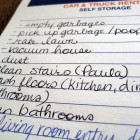 CAR & TRUCK RENT
SELF STORAGE
- empty garbages
- pick up garbage / poop
- rake lawn
- vacuum house
- dust
clean stairs (Paula)
floors (kitchen,
bathrooms
living room entry